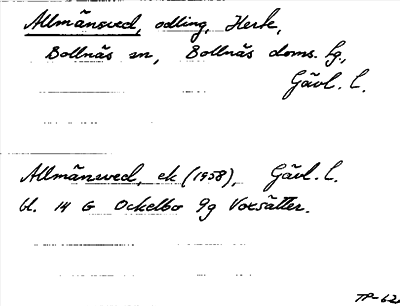 Allmänsved, odling, Herk,
Bollnäs sn, Bollnäs doms. lg.,
Gävl. l.
Allmänsved, ek (1958), Gävl. l.
bl. 14 G Ockelbo 9g Voxsätter.
TP-62